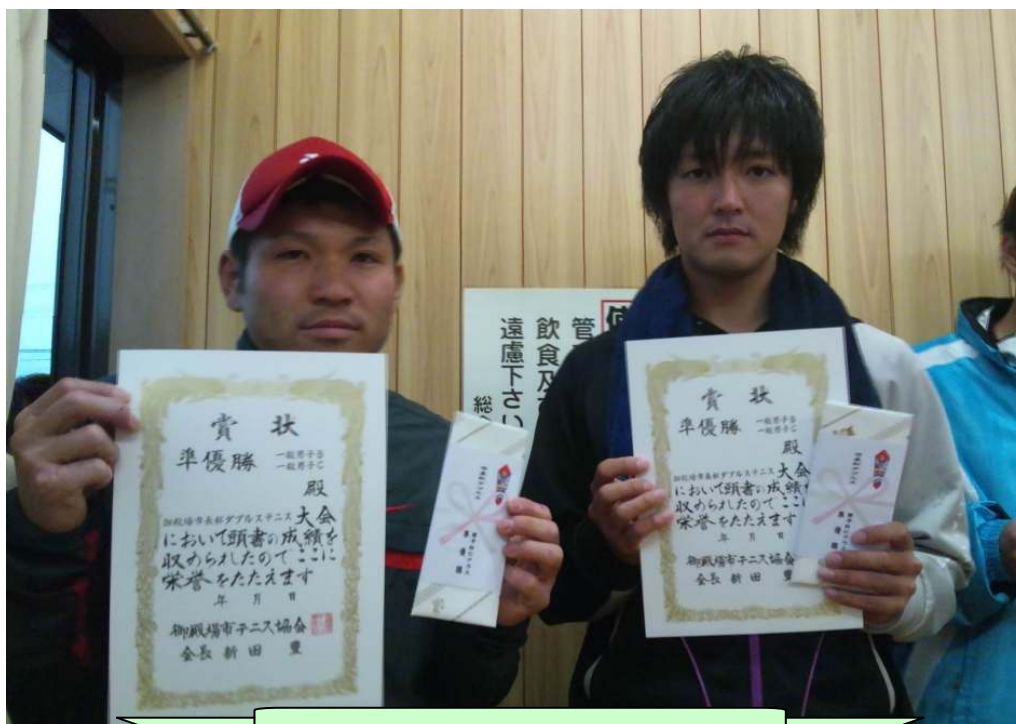 賞状
準優勝 一般男子B
一般男子C
殿
御殿場市長杯ダブルステニス大会
において頭書の成績を
収められたのでここに
栄誉をたたえます
年 月 日
御殿場市テニス協会
会長 新田 豊
準優勝
管
飲食及
遠慮下さい
総
賞状
準優勝 一般男子B
一般男子C
殿
御殿場市長杯ダブルステニス大会
において頭書の成績を
収められたのでここに
栄誉をたたえます
年 月 日
御殿場市テニス協会
会長 新田 豊
準優勝